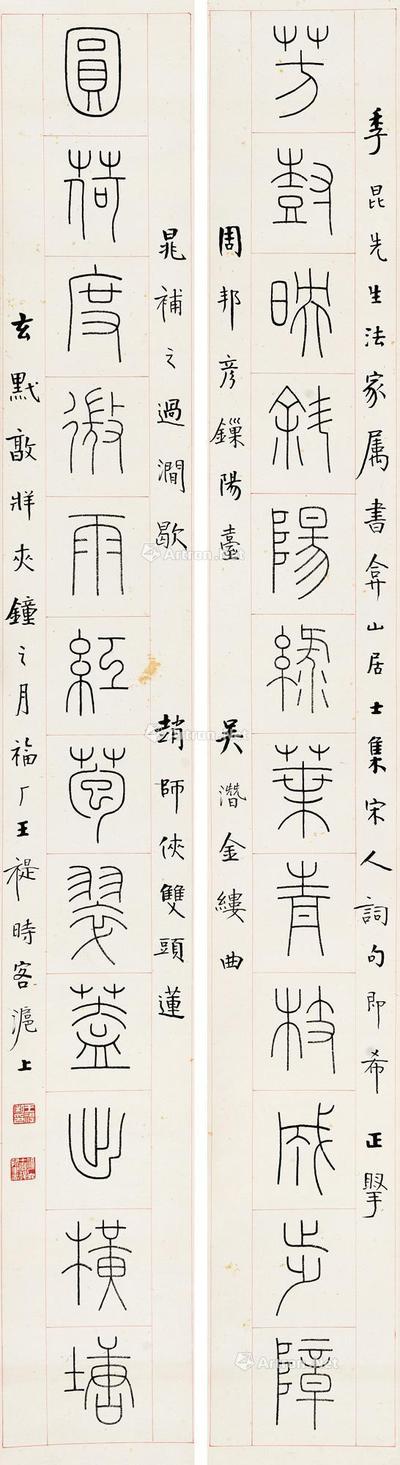 季昆先生法家属書弇山居士集宋人詞句即希正掔
芳尌映斜陽綠葉青枝成步障
周邦彥鏁陽臺 吳潛金縷曲
晁補之過澗歇 趙師俠雙頭蓮
圓荷度微雨紅苞翠蓋出橫塘
玄黓敦牂夾鐘之月福厂王禔時客滬上
Artron.Net
Artron.Net
Artron.Net
Artron.Net